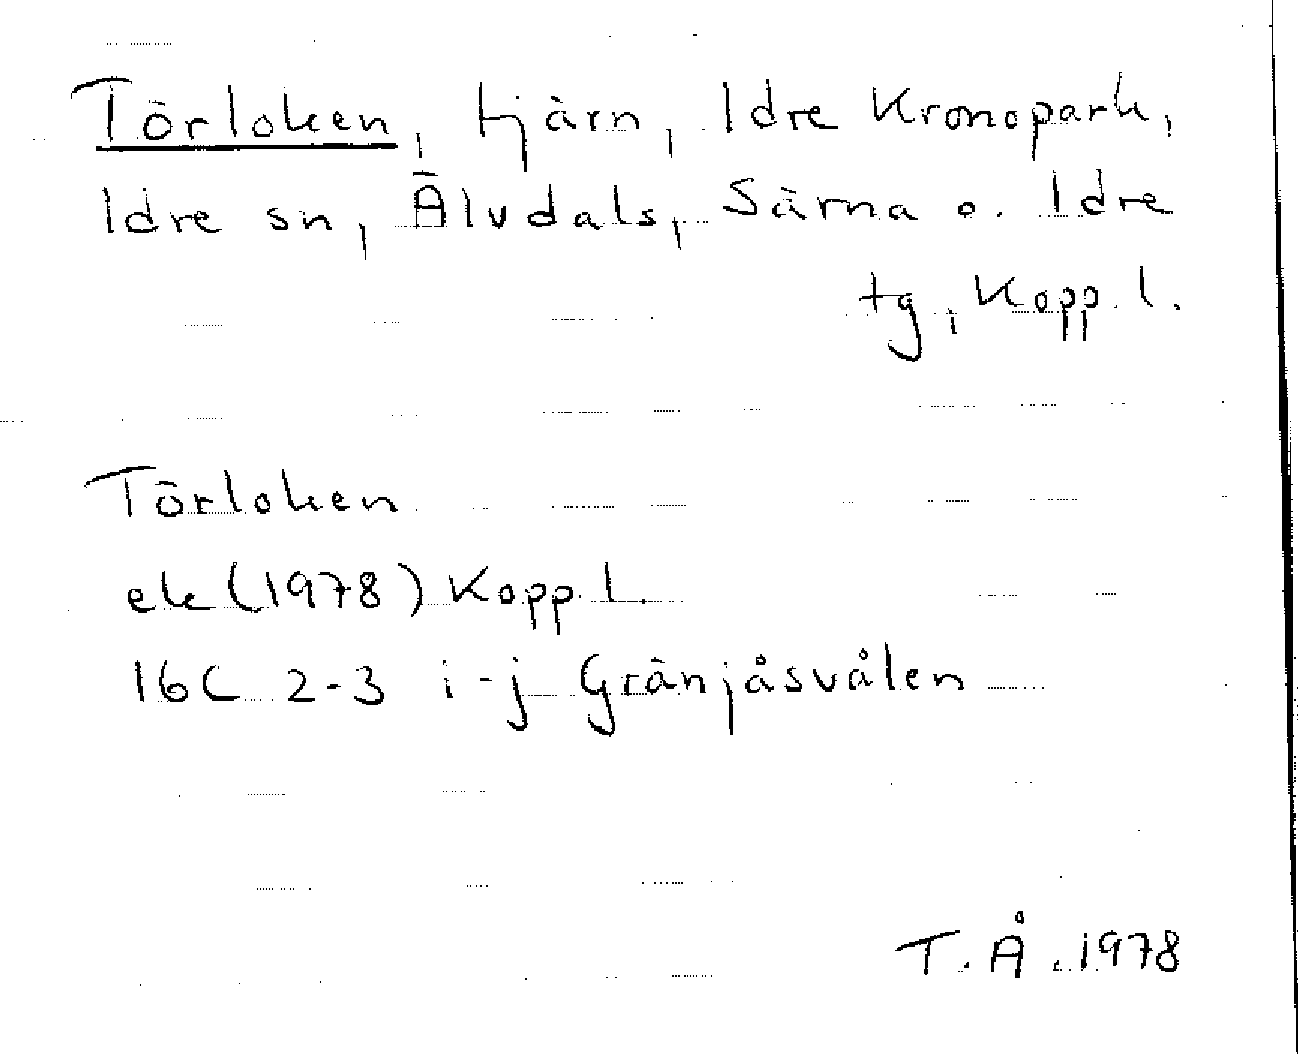 Törloken, tjärn, Idre Kronopark,
Idre sn, Älvdals, Särna o. Idre
tg, Kopp. l.
Törloken
ek (1978) Kopp. l.
16C 2-3 i-j Gränjåsvålen
T. Å. 1978